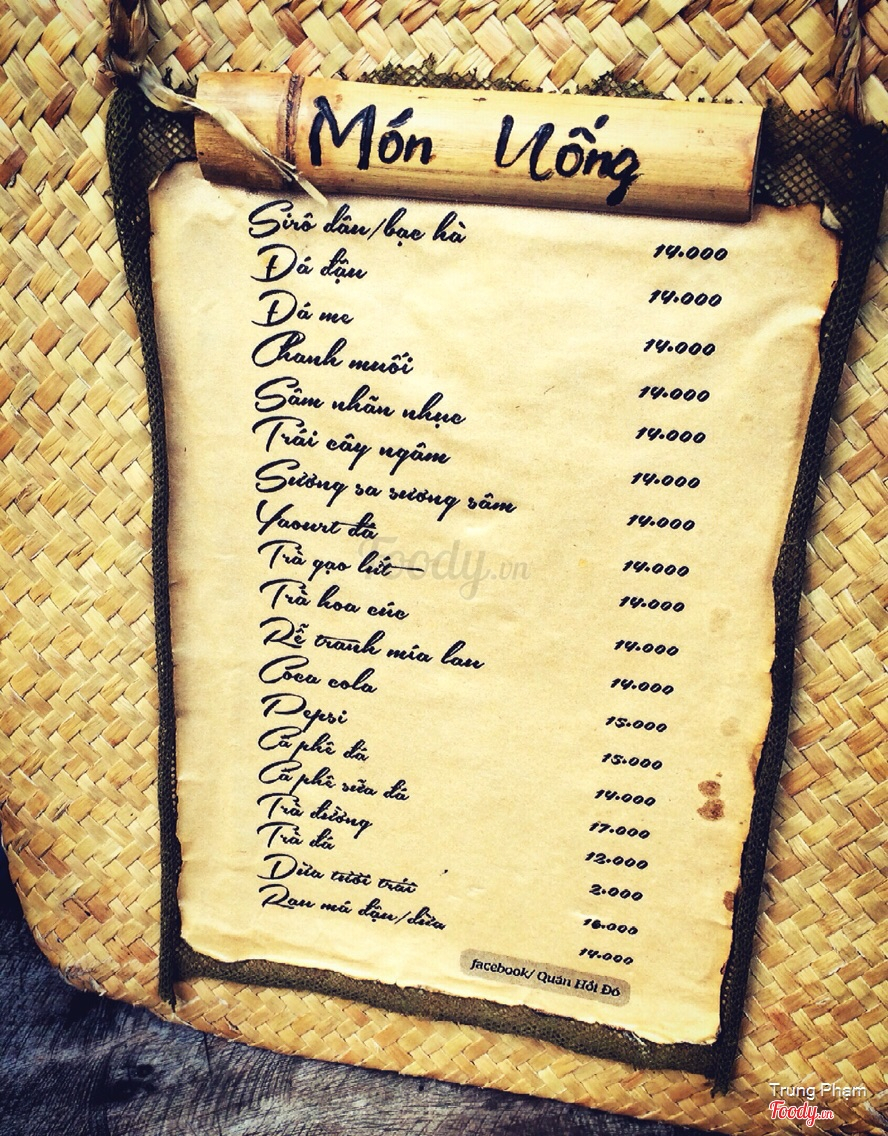 Món Uống
Sirô dâu/bạc hà 14.000
Đá đậu 14.000
Đá me 14.000
Chanh muối 14.000
Sâm nhãn nhục 14.000
Trái cây ngâm 14.000
Sương sa sương sâm 14.000
Yaourt đá 14.000
Trà gạo lứt 14.000
Trà hoa cúc 14.000
Rễ tranh mía lau 14.000
Coca cola 15.000
Pepsi 15.000
Cà phê đá 14.000
Cà phê sữa đá 17.000
Trà đường 12.000
Trà đá 2.000
Dừa tươi trái 16.000
Rau má đậu/dừa 14.000
facebook/ Quán Hồi Đó
Foody.vn
Trung Phạm
Foody.vn